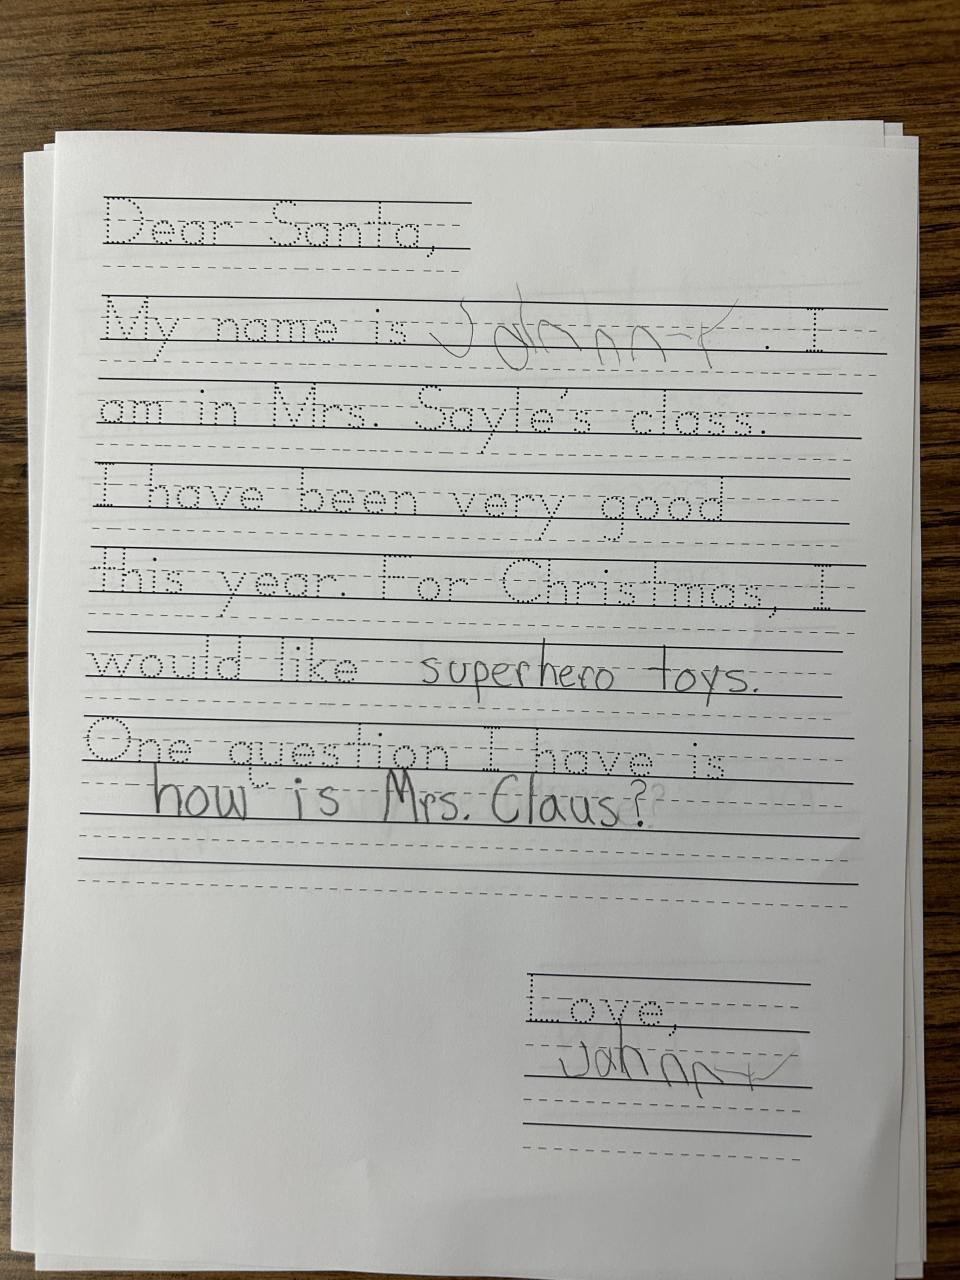 Dear Santa,
My name is . I
am in Mrs. Sayle's class.
I have been very good
this year. For Christmas, I
would like superhero toys.
One question I have is
how is Mrs. Claus?
Love,